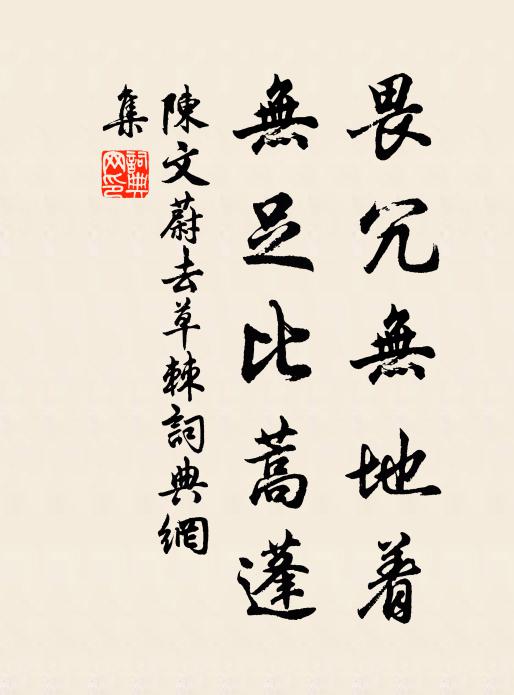 畏冗無地着
無足比蒿蓬
陳文蔚去草棘詞典網
集
詞典網印